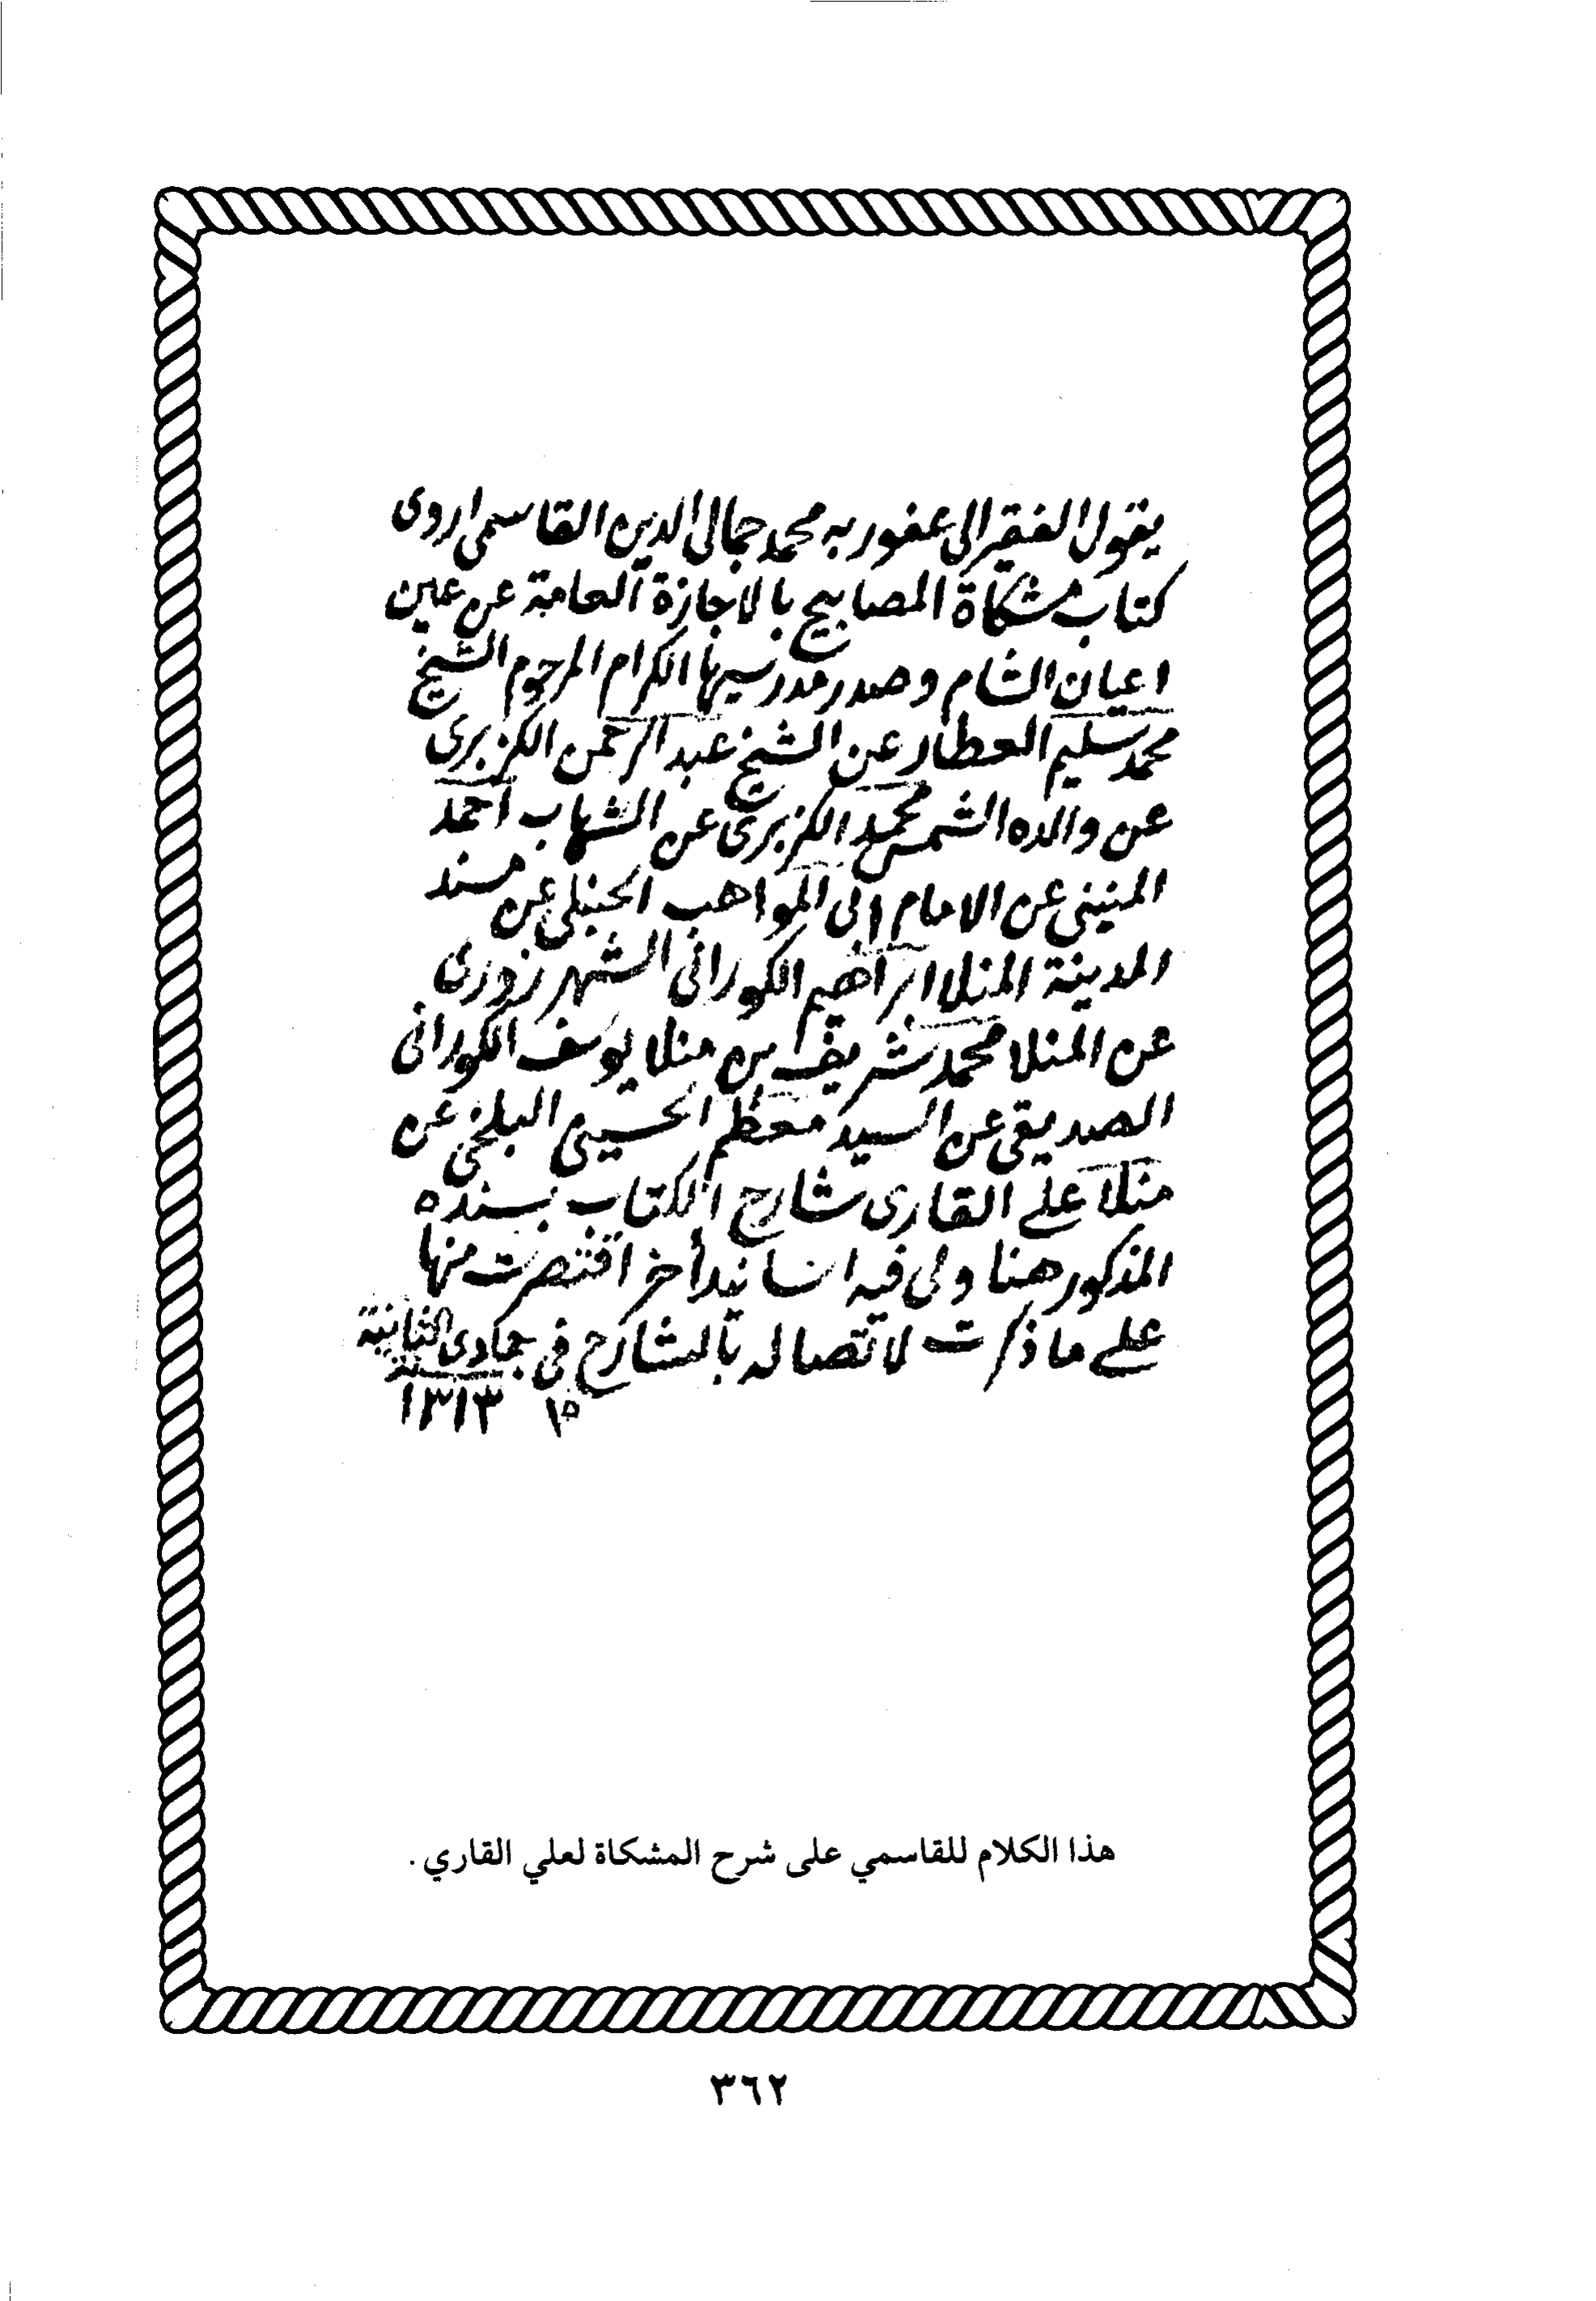 يقول الفقير الى عفو ربه محمد جمال الدين القاسمى اروى
كتاب مشكاة المصابيح بالاجازة العامة عن عين
اعيان الشام وصدر مدرسيها الكرام المرحوم الشيخ
محمد سليم العطار عن الشيخ عبد الرحمن الكزبرى
عن والده الشمس محمد الكزبرى عن الشهاب احمد
المنينى عن الامام ابى المواهب الحنبلى عن مسند
المدينة المنلا ابراهيم الكورانى الشهرزورى
عن المنلا محمد شريف بن منلا يوسف الكورانى
الصديقى عن السيد معظم الحسينى البلخى عن
منلا على القارى شارح الكتاب بسنده
المذكور هنا ولى فيه اسانيد أخر اقتصرت منها
على ما ذكرت لاتصاله بالشارح فى جمادى الثانية
سنة
١٣١٣
هذا الكلام للقاسمي على شرح المشكاة لعلي القاري .
٣٦٢